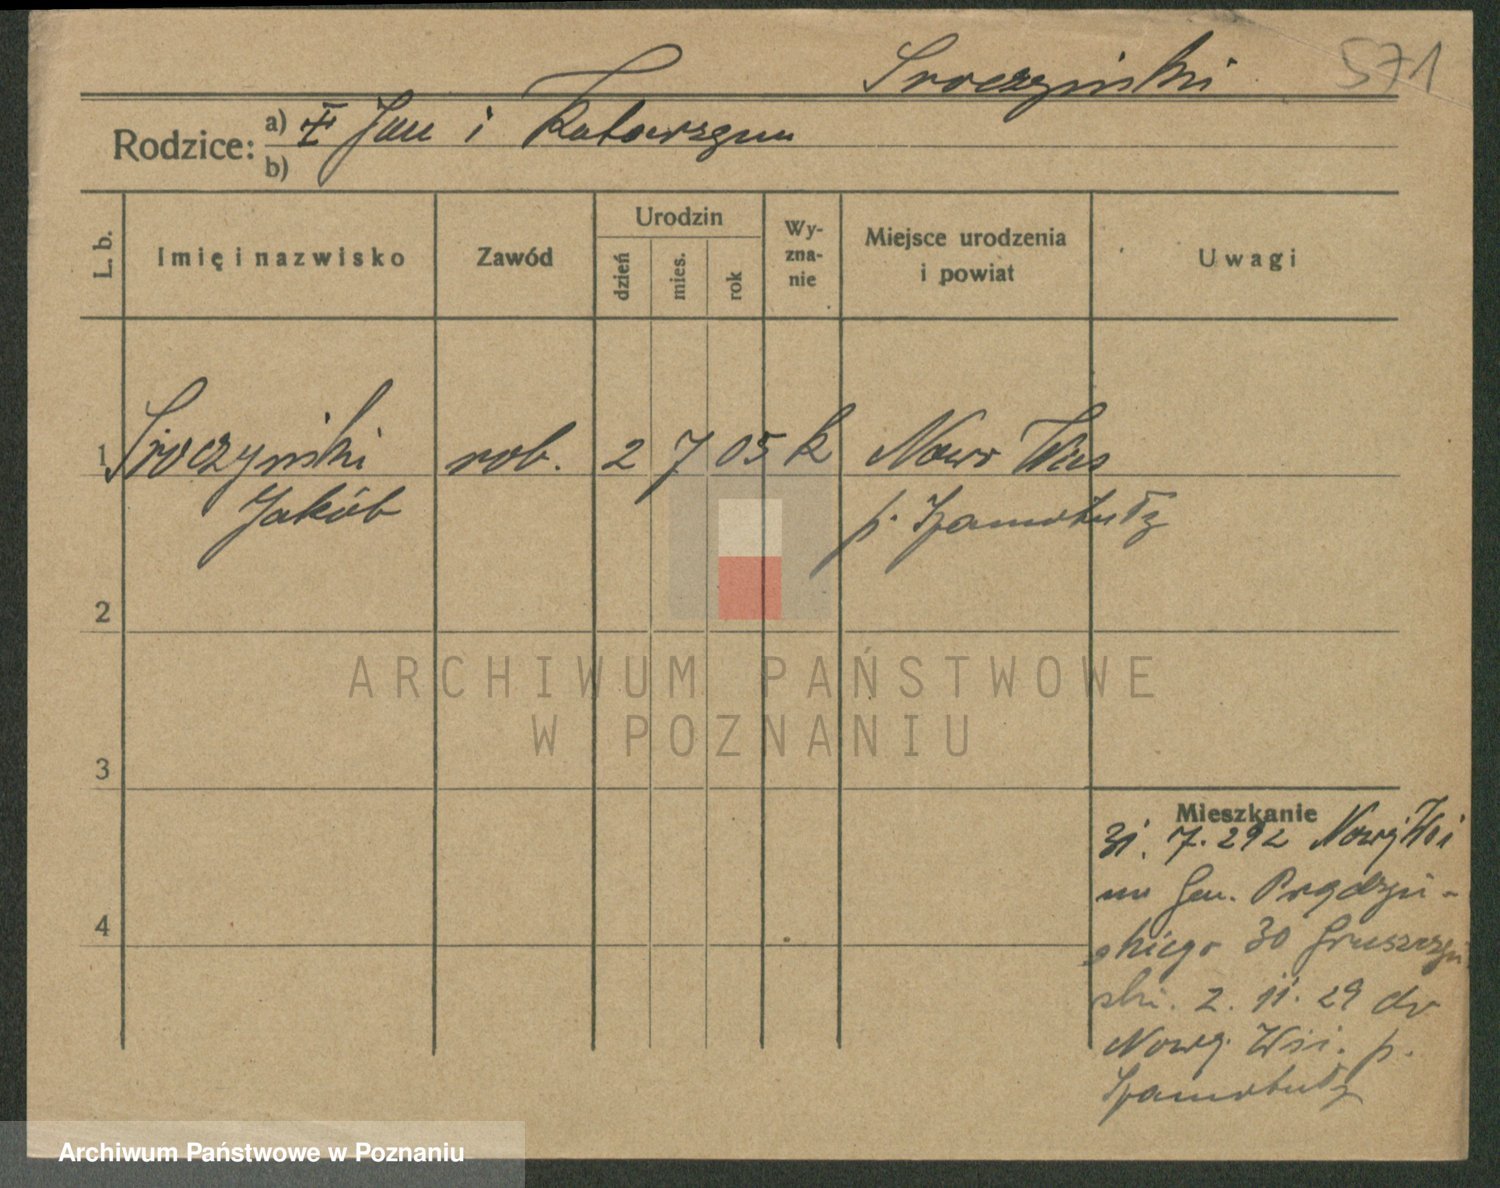 Sroczyński 571
Rodzice: a) Jan i Katarzyna
b)
L. b. Imię i nazwisko Zawód Urodzin dzień mies. rok Wy-zna-nie Miejsce urodzenia i powiat Uwagi
1 Sroczyński rob. 2 7 05 k Nowa Wieś
Jakób p. Szamotuły
2
ARCHIWUM PAŃSTWOWE
W POZNANIU
3
Mieszkanie
31. 7. 29 z Nowej Wsi
na Gen. Prądzyń-
skiego 30 Gruszczyń
ski. 2. 11. 29 do
Nowej Wsi. p.
Szamotuły
4
Archiwum Państwowe w Poznaniu